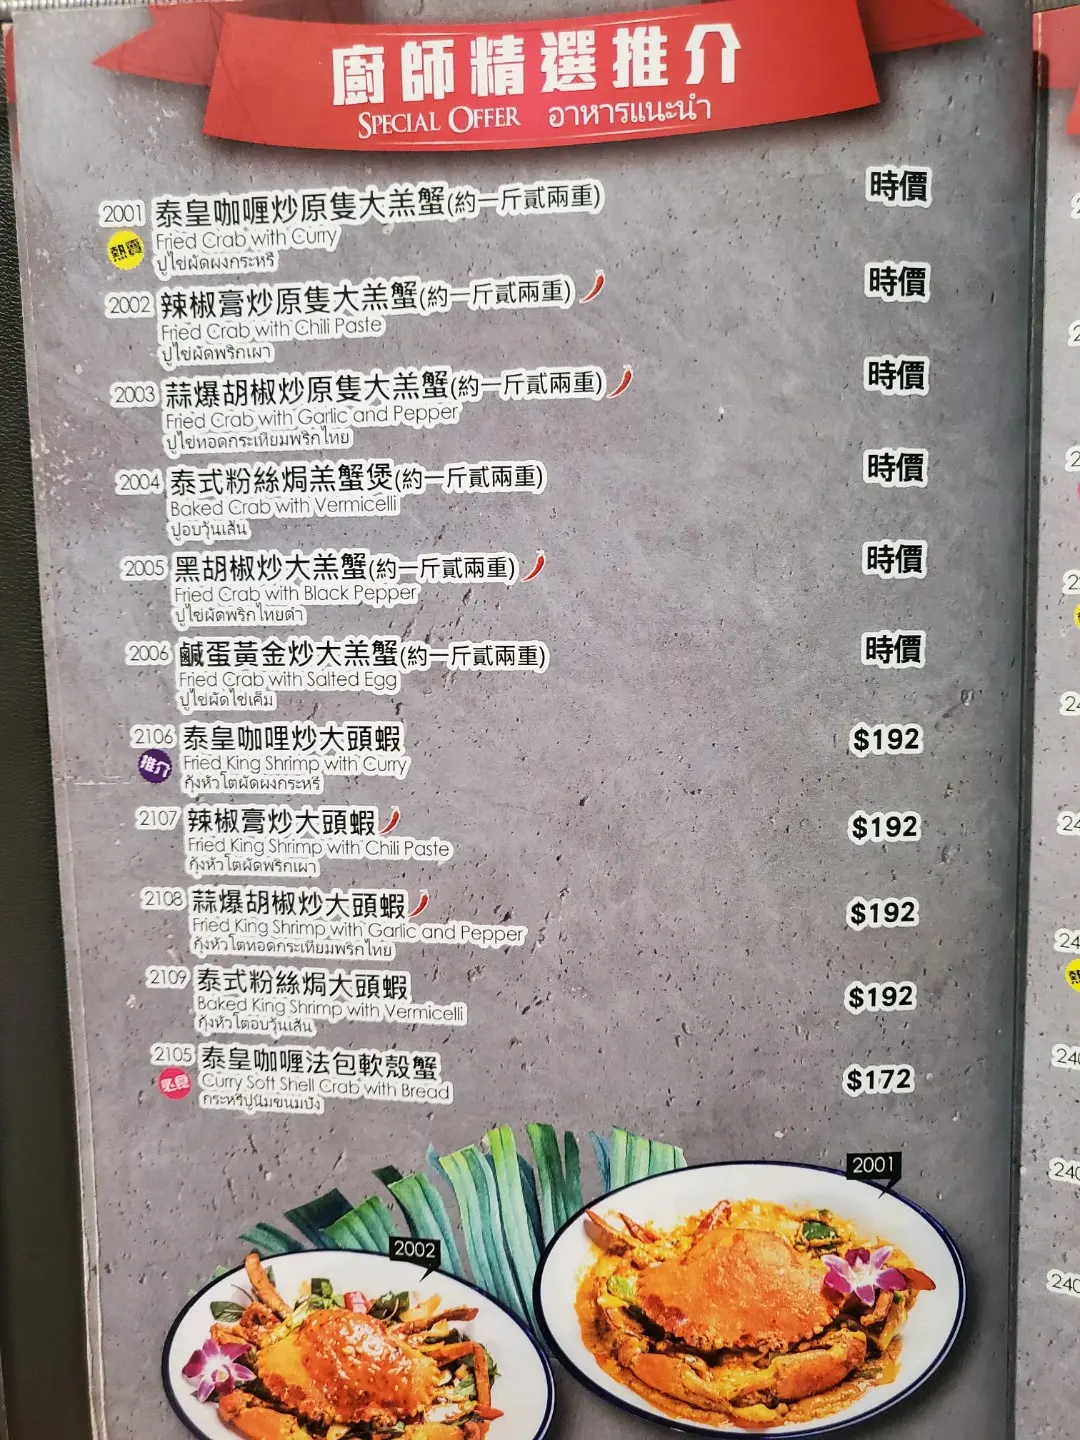 廚師精選推介
SPECIAL OFFER อาหารแนะนำ
2001 泰皇咖喱炒原隻大羔蟹(約一斤貳兩重) 時價
熱賣
Fried Crab with Curry
ปูไข่ผัดผงกระหรี่
2002 辣椒膏炒原隻大羔蟹(約一斤貳兩重) 時價
Fried Crab with Chili Paste
ปูไข่ผัดพริกเผา
2003 蒜爆胡椒炒原隻大羔蟹(約一斤貳兩重) 時價
Fried Crab with Garlic and Pepper
ปูไข่ทอดกระเทียมพริกไทย
2004 泰式粉絲焗羔蟹煲(約一斤貳兩重) 時價
Baked Crab with Vermicelli
ปูอบวุ้นเส้น
2005 黑胡椒炒大羔蟹(約一斤貳兩重) 時價
Fried Crab with Black Pepper
ปูไข่ผัดพริกไทยดำ
2006 鹹蛋黃金炒大羔蟹(約一斤貳兩重) 時價
Fried Crab with Salted Egg
ปูไข่ผัดไข่เค็ม
2106 泰皇咖哩炒大頭蝦 $192
推介
Fried King Shrimp with Curry
กุ้งหัวโตผัดผงกระหรี่
2107 辣椒膏炒大頭蝦 $192
Fried King Shrimp with Chili Paste
กุ้งหัวโตผัดพริกเผา
2108 蒜爆胡椒炒大頭蝦 $192
Fried King Shrimp with Garlic and Pepper
กุ้งหัวโตทอดกระเทียมพริกไทย
2109 泰式粉絲焗大頭蝦 $192
Baked King Shrimp with Vermicelli
กุ้งหัวโตอบวุ้นเส้น
2105 泰皇咖喱法包軟殼蟹 $172
必食
Curry Soft Shell Crab with Bread
กระหรี่ปูนิ่มขนมปัง
2001
2002